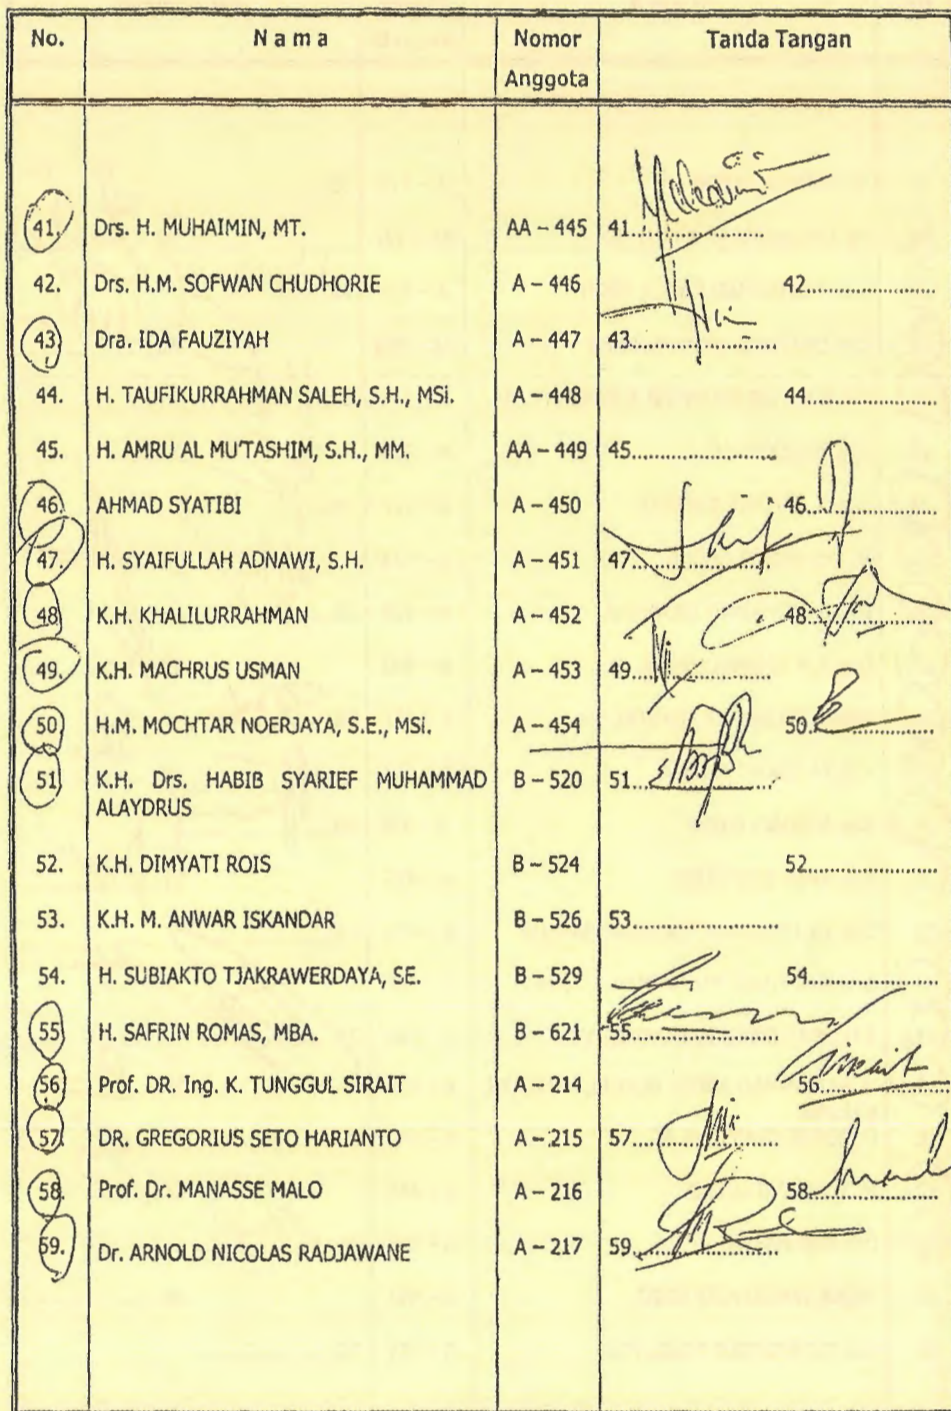 No. N a m a Nomor Anggota Tanda Tangan
41. Drs. H. MUHAIMIN, MT. AA – 445 41.......................
42. Drs. H.M. SOFWAN CHUDHORIE A – 446 42.......................
43. Dra. IDA FAUZIYAH A – 447 43.......................
44. H. TAUFIKURRAHMAN SALEH, S.H., MSi. A – 448 44.......................
45. H. AMRU AL MU'TASHIM, S.H., MM. AA – 449 45.......................
46. AHMAD SYATIBI A – 450 46.......................
47. H. SYAIFULLAH ADNAWI, S.H. A – 451 47.......................
48. K.H. KHALILURRAHMAN A – 452 48.......................
49. K.H. MACHRUS USMAN A – 453 49.......................
50. H.M. MOCHTAR NOERJAYA, S.E., MSi. A – 454 50.......................
51. K.H. Drs. HABIB SYARIEF MUHAMMAD B – 520 51.......................
ALAYDRUS
52. K.H. DIMYATI ROIS B – 524 52.......................
53. K.H. M. ANWAR ISKANDAR B – 526 53.......................
54. H. SUBIAKTO TJAKRAWERDAYA, SE. B – 529 54.......................
55. H. SAFRIN ROMAS, MBA. B – 621 55.......................
56. Prof. DR. Ing. K. TUNGGUL SIRAIT A – 214 56.......................
57. DR. GREGORIUS SETO HARIANTO A – 215 57.......................
58. Prof. Dr. MANASSE MALO A – 216 58.......................
59. Dr. ARNOLD NICOLAS RADJAWANE A – 217 59.......................